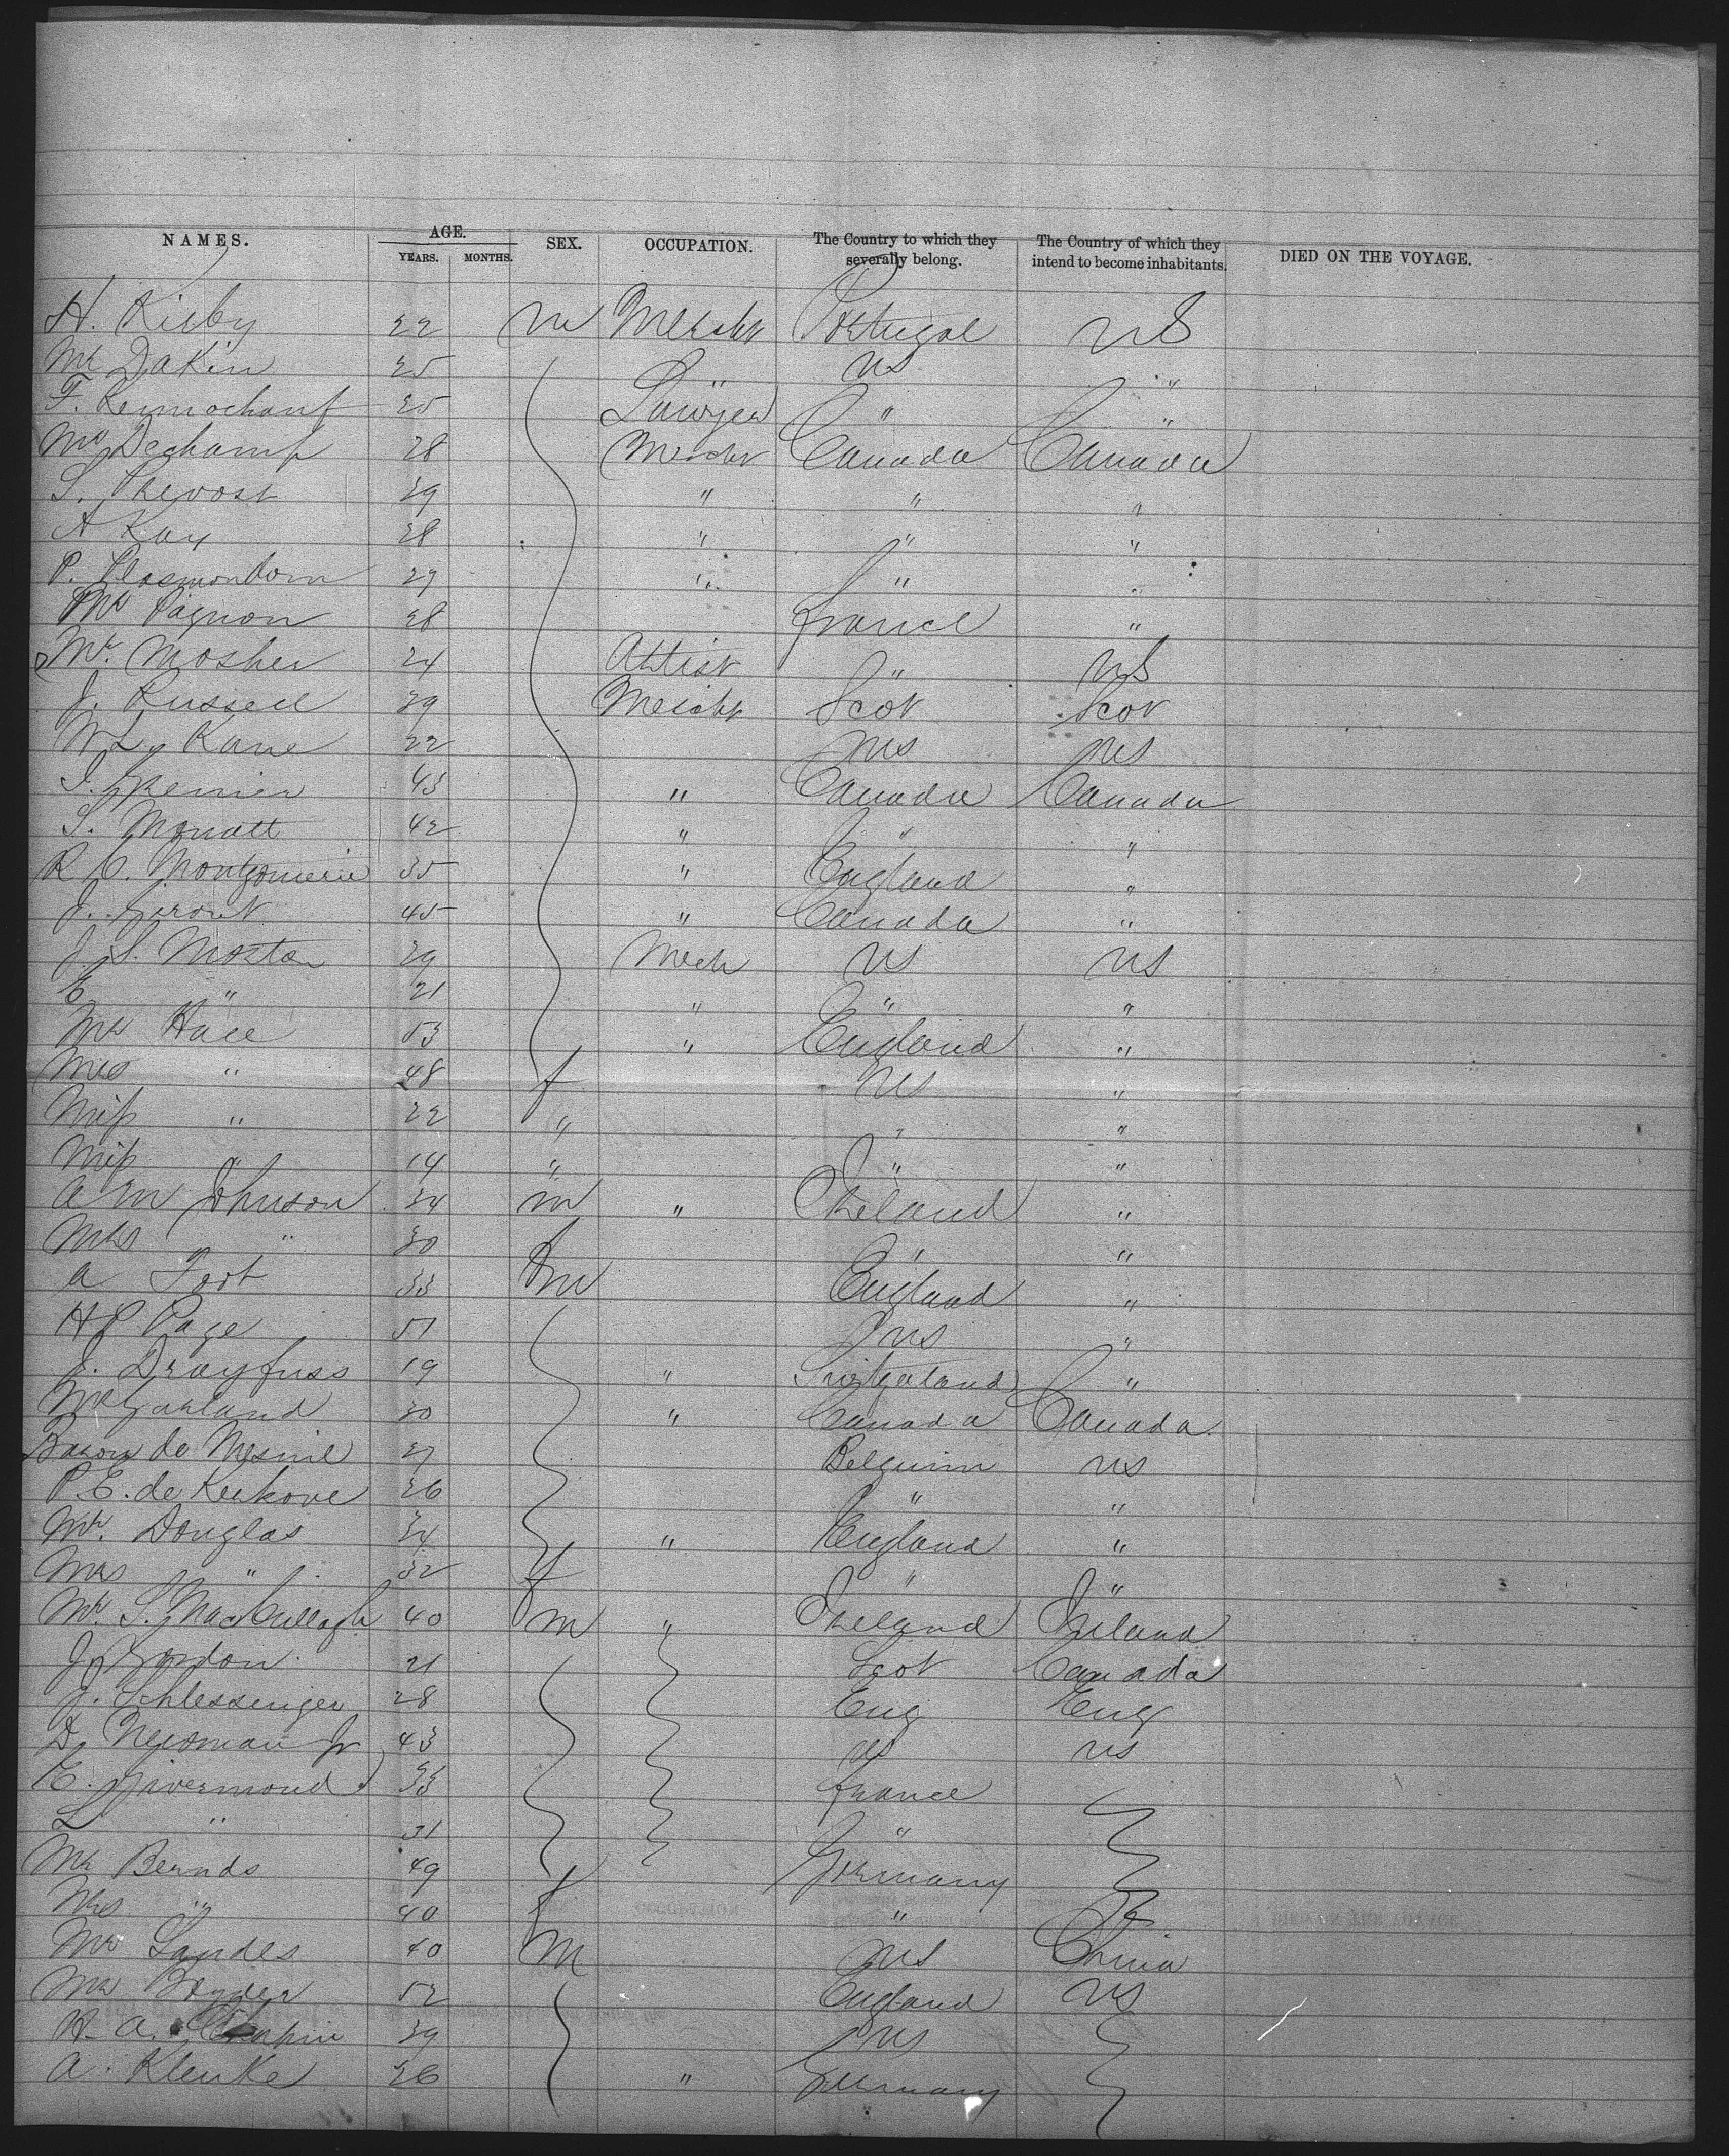 NAMES. AGE. YEARS. MONTHS. SEX. OCCUPATION. The Country to which they severally belong. The Country of which they intend to become inhabitants. DIED ON THE VOYAGE.
H. Kirby 22 m Mercht Portugal US
Mr Dakin 25 " US "
F. 25 Lawyer " "
Mr Dechamp 28 Mercht Canada Canada
S. Prevost 39 " " "
A Kay 38 " " "
P. Plasmondom 29 " " "
Mr Pagnon 38 France "
Mr. Mosher 24 Artist " US
J. Russell 39 Mercht Scot Scot
W L. Kane 22 US US
J. Grenier 43 " Canada Canada
S. 42 " " "
R C. Montgomerie 35 " England "
J. Giroux 45 " Canada "
J. S. Morton 39 Mech US US
E " 21 " " "
Mr Hall 53 " England "
Mrs " 48 f US "
Miss " 22 " " "
Miss " 14 " " "
A M Johnson 34 m " Ireland "
Mrs " 30 f " "
A Foot 33 m England "
H P Page 51 US "
J. Drayfuss 19 " Switzeland "
Mr Garland 30 " Canada Canada
Baron de Mesnil 27 Belguim US
P. E. de Kerkove 26 " "
Mr. Douglas 34 " England "
Mrs " 32 f " "
Mr S. MacCullagh 40 m " Ireland Ireland
J. Gordon 21 Scot Canada
J. Schlessenger 28 Eng Eng
D. Newman Jr 43 US US
E. Givermond 33 France
L " 31 "
Mr Bernds 49 Germany
Mrs " 40 f "
Mr Landes 40 M US China
Mr 52 England US
H. A. Chapin 39 US
A. Klenke 26 " Germany